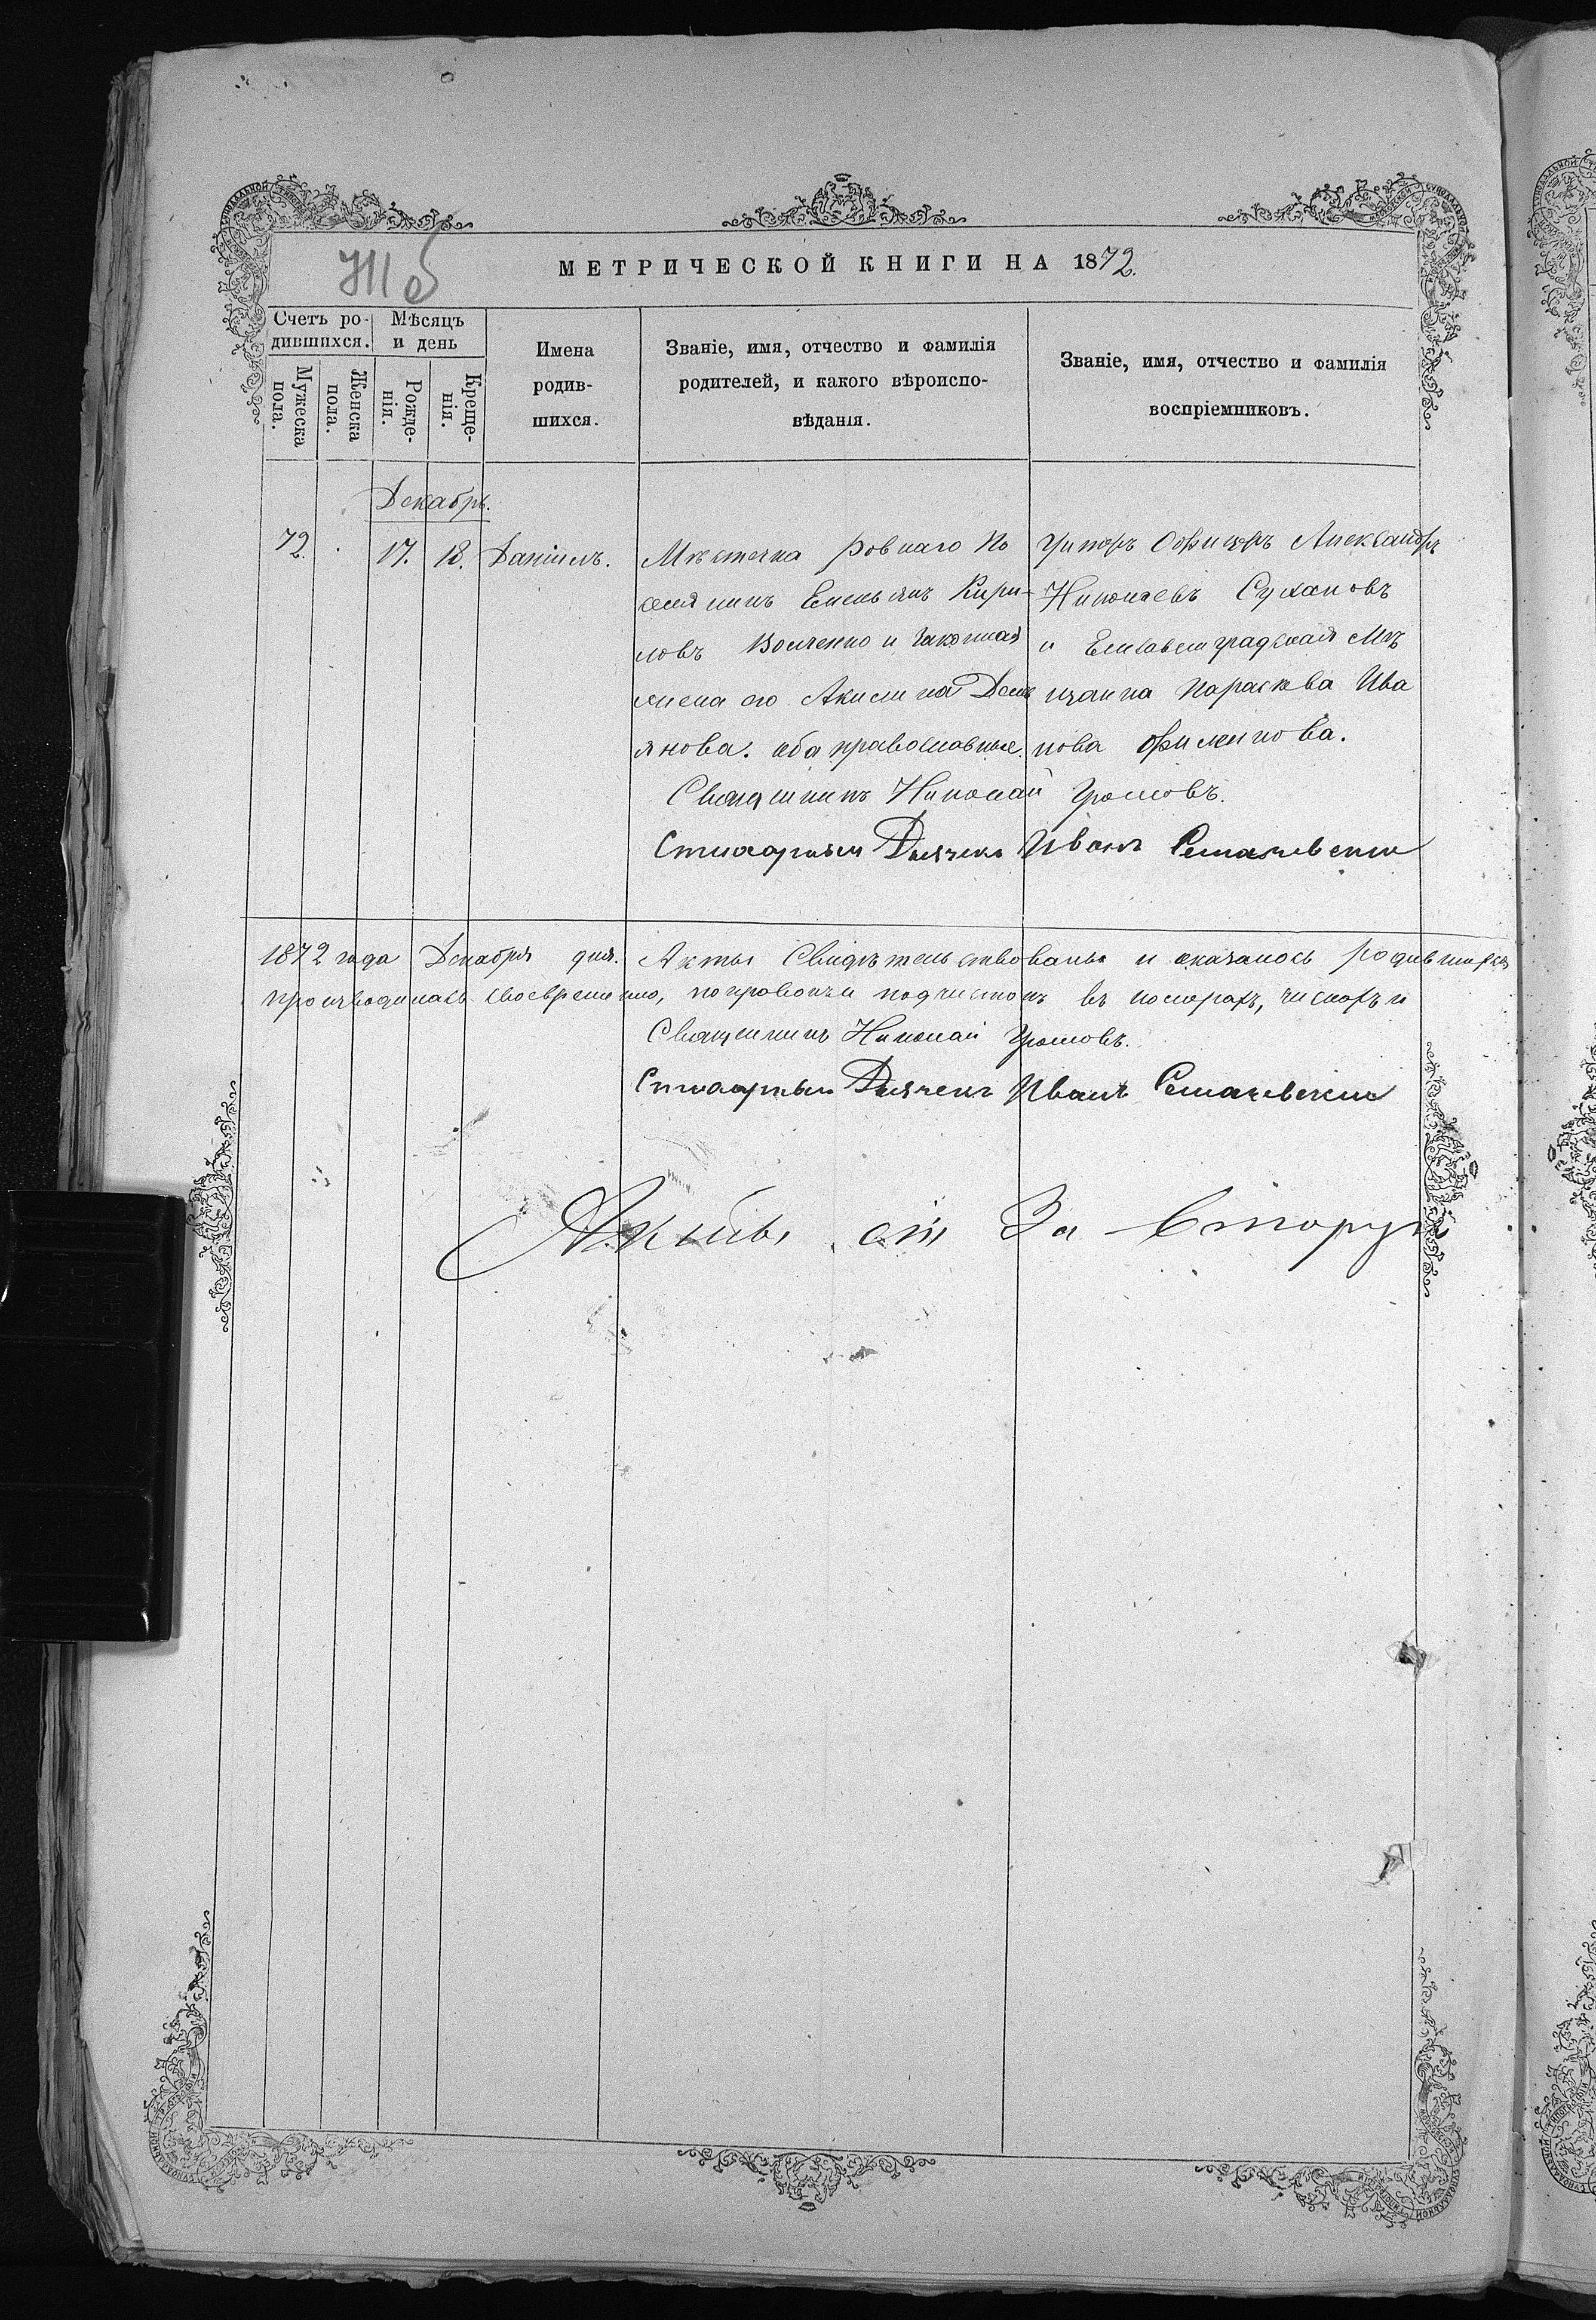 МЕТРИЧЕСКОЙ КНИГИ НА 1872.
Счетъ ро-
дившихся.
Мужеска
пола.
Женска
пола.
Мѣсяцъ
и день
Рожде-
нія.
Креще-
нія.
Имена
родив-
шихся.
Званіе, имя, отчество и фамилія
родителей, и какого вѣроиспо-
вѣданія.
Званіе, имя, отчество и фамилія
воспріемниковъ.
Декабрь.
72. 17. 18. Даніилъ.
Мѣстечка Ровнаго По
селянинъ Емельянъ Кири-
ловъ Волченко и законная
жена его Акилина Демь
янова. оба православные.
Унтеръ Офицеръ Александръ
Николаевъ Сухановъ
и Елисаветградская Мѣ
щанка Параскева Ива
нова Филипова.
Священникъ Николай Громовъ.
Дьячекъ Иванъ
1872 года Декабря дня. Акты Свидѣтельствованы и оказалось родившихся
производилась своевременно, поправокъ и подчистокъ въ
Священникъ Николай Громовъ.
Дьячекъ Иванъ